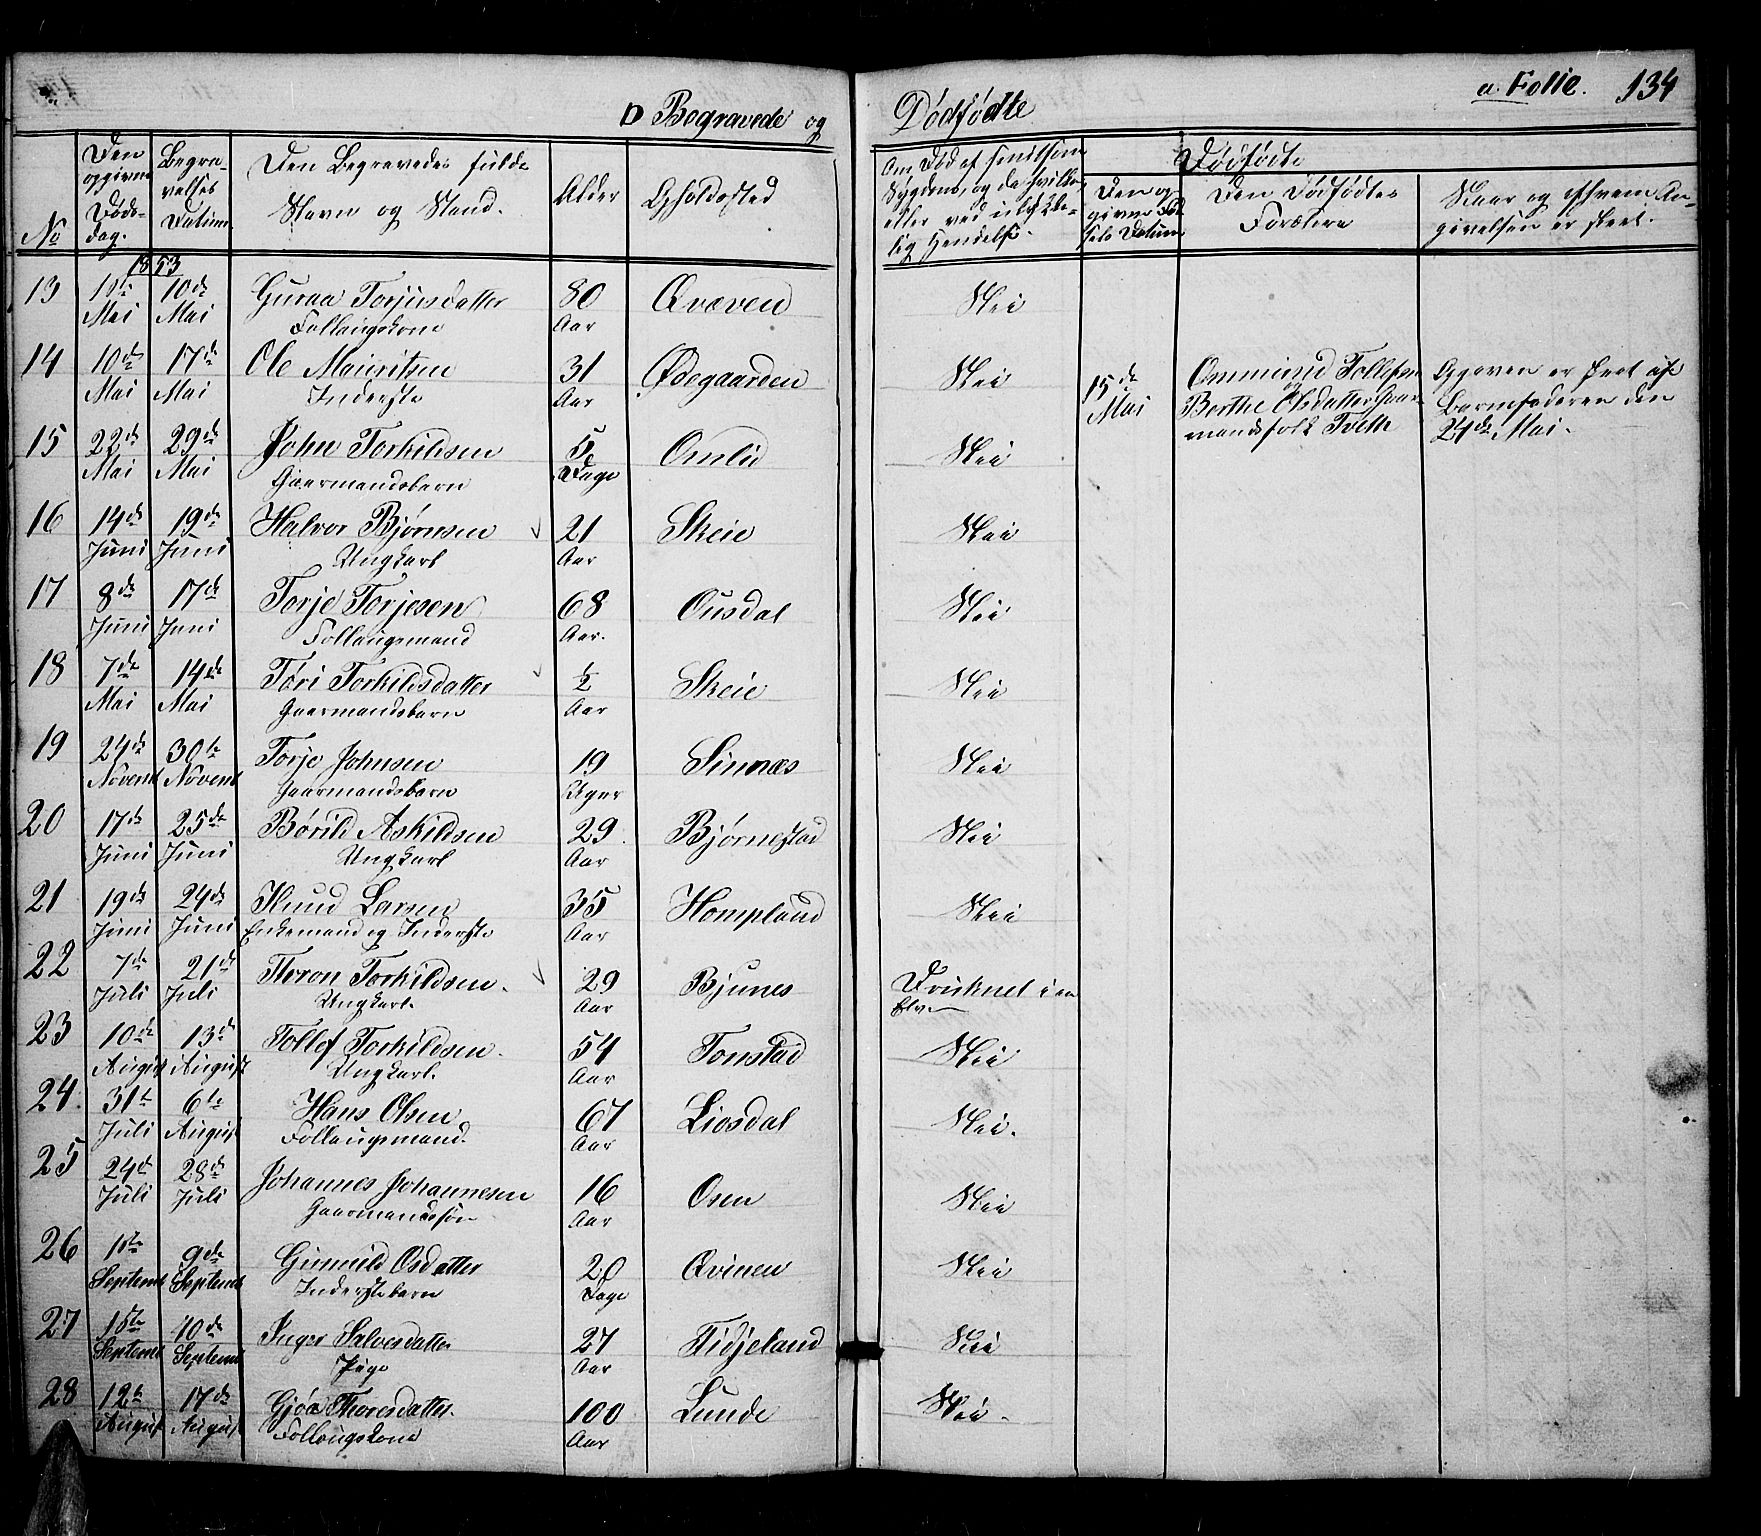 D Begravede og Dødfødte
a. Folie. 134
No
Den opgivne Døds-dag.
Begra-velses Datum
Den Begravedes fulde Navn og Stand.
Alder
Opholdssted
Om Død af smitsom Sygdom, og da hvilken eller ved ulykke-lig Hendelse.
Dødfødte
Den op-givne Fød-sels Datum
Den Dødfødtes Forældre
Naar og Hvem An-givelsen er skeet.
1853
13 1ste Mai 10de Mai Guraa Torjusdatter 80 Aar Qvæven Nei
Follaugskone
14 10de Mai 17de Mai Ole Mauritsen 31 Aar Ødegaarden Nei
Inderste
15de Mai Ommund Tollefsen og Berthe Olsdatter Gaar-mandsfolk Tveth
Opgaven er skeet af Barnefaderen den 24de Mai.
15 22de Mai 29de Mai John Torkildsen 5 Dage Omlid Nei
Gaarmandsbarn
16 14de Juni 19de Juni Halvor Bjørnsen 21 Aar Skeie Nei
Ungkarl
17 8de Juni 17de Juni Torje Torjesen 68 Aar. Ousdal Nei
Follaugsmand
18 7de Mai 14de Mai Tøri Torkildsdatter 1/2 Aar Skeie Nei
Gaarmandsbarn
19 24de Novemb 30te Novemb Torje Johnsen 19 Uger Sinnæs Nei
Gaarmandsbarn
20 17de Juni 25de Juni Børild Askildsen 29 Aar Bjørnestad Nei
Ungkarl
21 19de Juni 24de Juni Knud Larsen 35 Aar Hompland Nei
Enkemand og Inderste
22 7de Juli 21de Juli Torkildsen. 29 Aar Bjunes Druknet i en Elv
Ungkarl.
23 10de August 13de August Tollef Torkildsen. 54 Aar Tonstad Nei
Ungkarl.
24. 31te Juli 6te August Hans Olsen 67 Aar Liosdal Nei.
Follaugsmand.
25 24de Juli 28de Juli Johannes Johannesen 16 Aar Osen Nei
Gaarmandssøn
26 1ste Septemb 9de Septemb Gunnild Osdatter 20 Dage Qvinen Nei
Inderstebarn
27 1ste Septemb 10de Septemb Inger Salvesdatter 27 Aar Fidjeland Nei
Pige
28 12te August 17de August Gjøa Thoresdatter. 100 Aar Lunde Nei.
Follaugskone